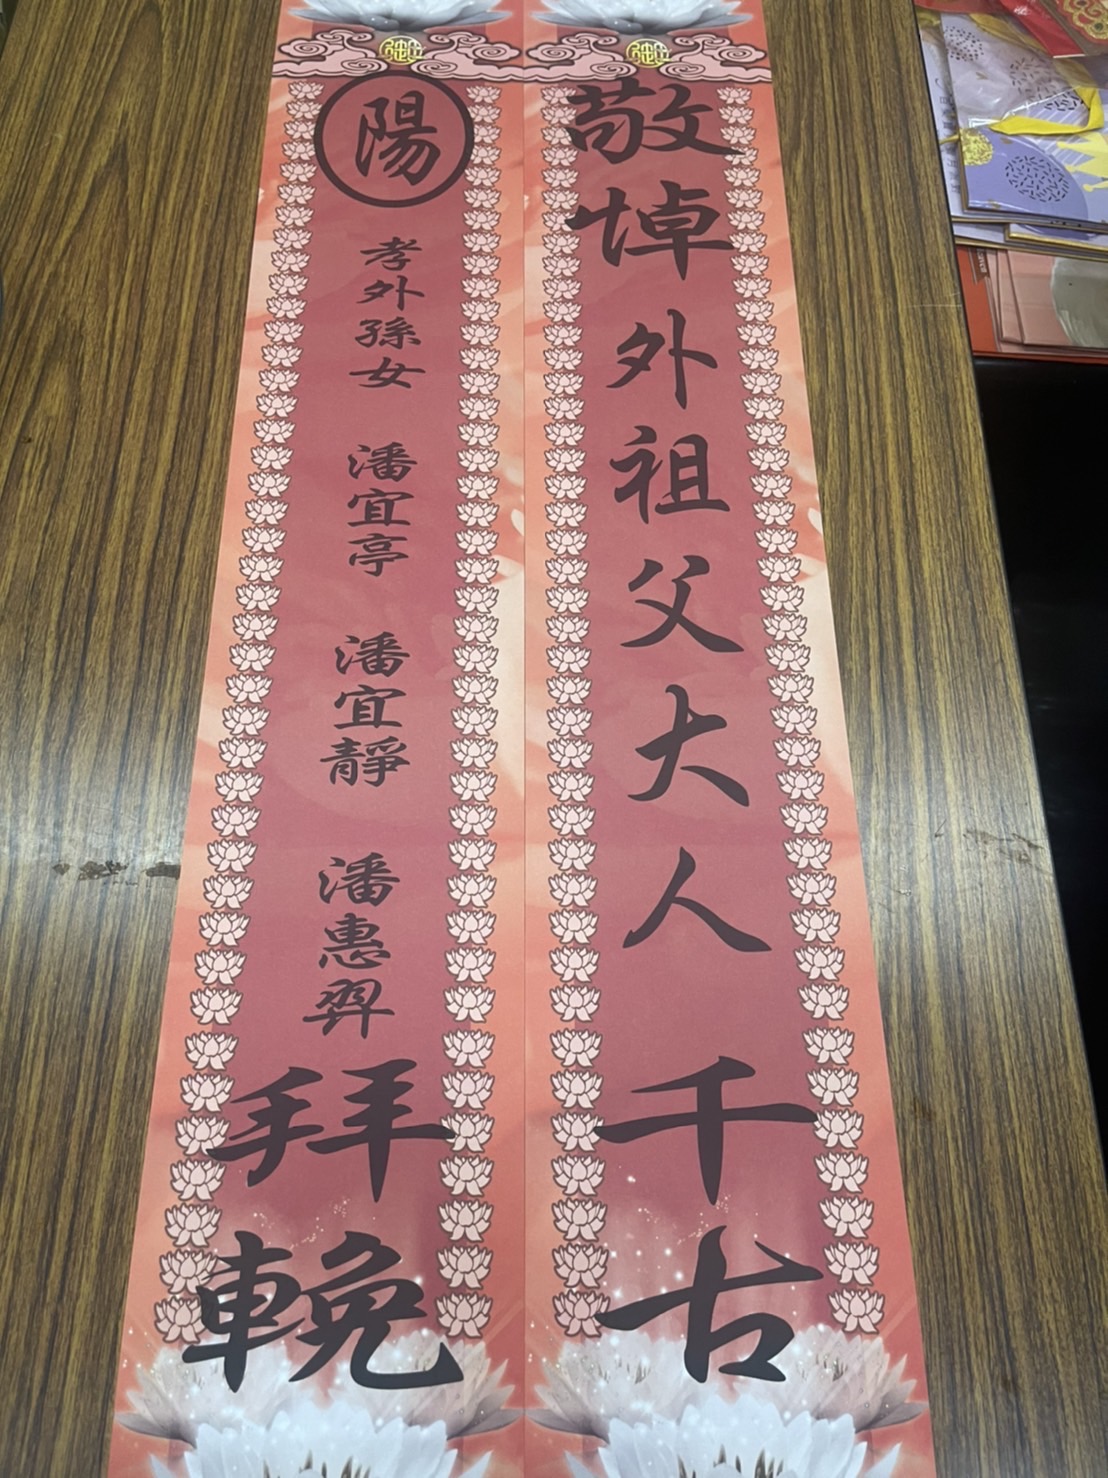 敬悼外祖父大人千古
陽
孝外孫女 潘宜亭 潘宜靜 潘惠羿 拜輓